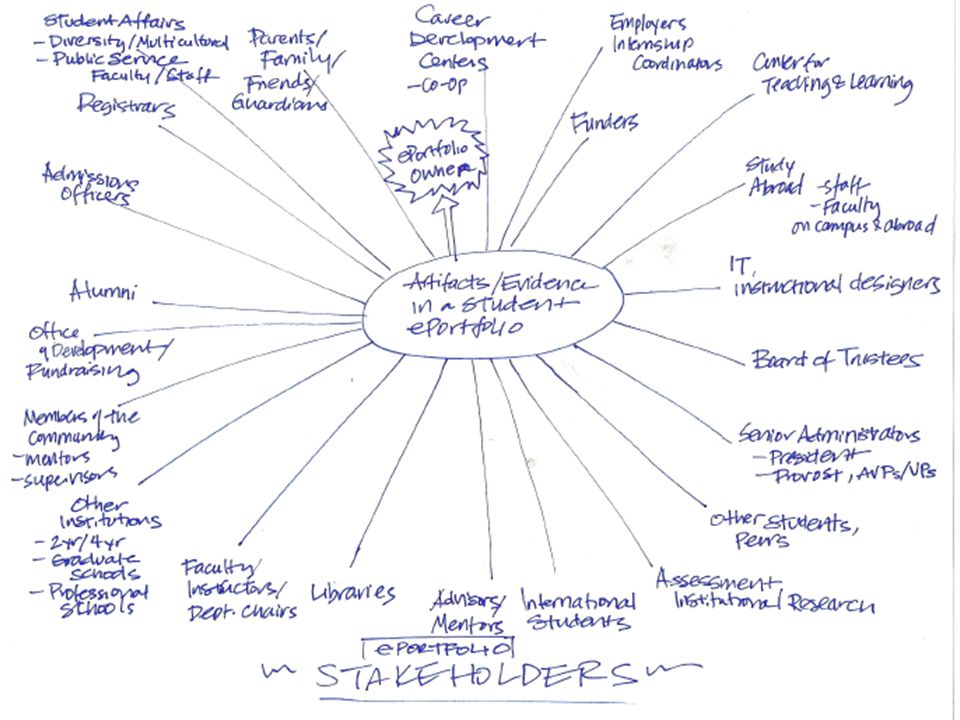 Student Affairs
- Diversity/Multicultural
- Public Service
Faculty/Staff
Registrars
Parents/
Family/
Friends/
Guardians
Career
Development
Centers
- Co-op
Employers
Internship
Coordinators
Funders
Center for
Teaching & Learning
ePortfolio
owner
Admissions
Officers
Study
Abroad - staff
- Faculty
on campus & abroad
Artifacts/Evidence
in a student
ePortfolio
IT,
instructional designers
Alumni
Office
of Development/
Fundraising
Board of Trustees
Members of the
Community
- mentors
- supervisors
Senior Administrators
- President
- Provost, AVPs/VPs
Other
Institutions
- 2yr/4yr
- Graduate
Schools
- Professional
Schools
Other students,
Peers
Faculty/
Instructors/
Dept. Chairs
Libraries
Advisors/
Mentors
International
Students
Assessment
Institutional Research
ePORTFOLIO
STAKEHOLDERS